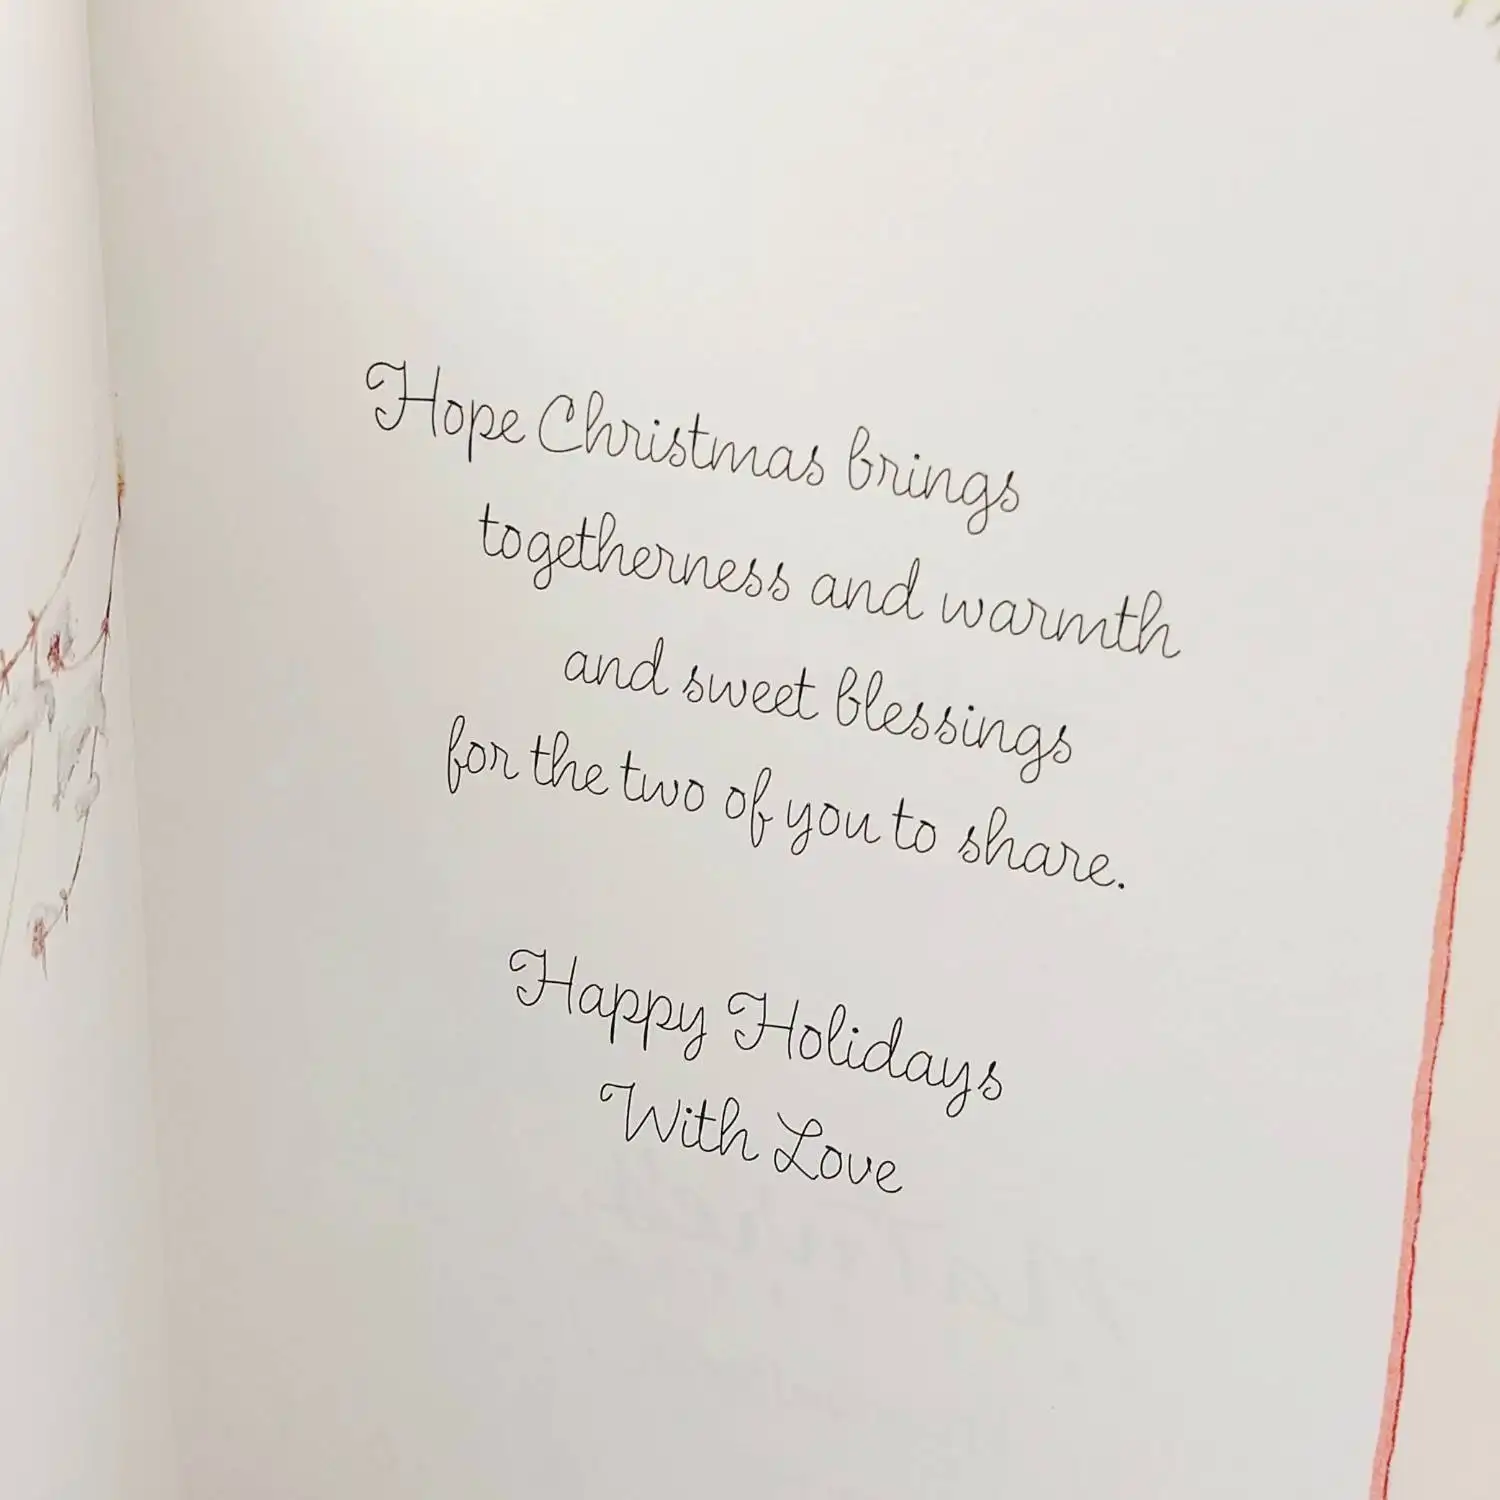 Hope Christmas brings
togetherness and warmth
and sweet blessings
for the two of you to share.
Happy Holidays
With Love